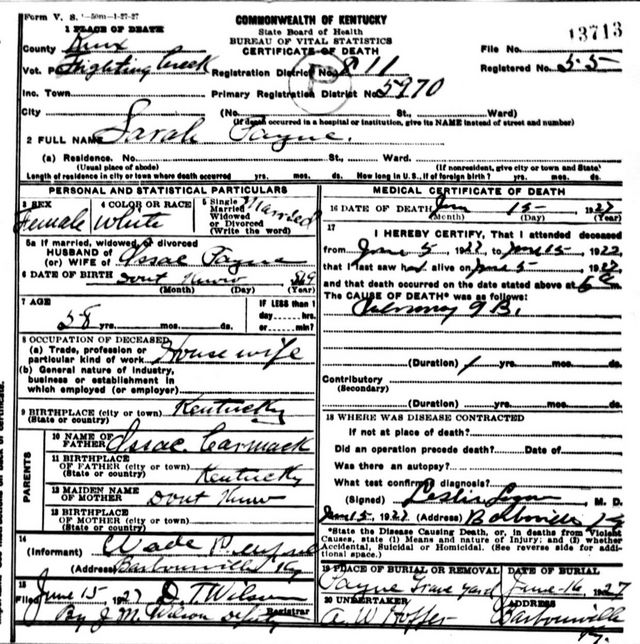 Form V. S. 1-50m-1-27-27
COMMONWEALTH OF KENTUCKY
State Board of Health
BUREAU OF VITAL STATISTICS
CERTIFICATE OF DEATH
13713
1 PLACE OF DEATH
County Knox
File No.
Vot. P. Fighting Creek
Registration District No. 811
Registered No. 55
Inc. Town
Primary Registration District No. 5970
City (No. St., Ward)
(If death occurred in a hospital or institution, give its NAME instead of street and number)
2 FULL NAME Sarah Payne.
(a) Residence. No. St., Ward.
(Usual place of abode) (If nonresident, give city or town and State)
Length of residence in city or town where death occurred yrs. mos. ds. How long in U. S., if of foreign birth? yrs. mos. ds.
PERSONAL AND STATISTICAL PARTICULARS
3 SEX
Female
4 COLOR OR RACE
White
5 Single
Married
Widowed
or Divorced
(Write the word)
Married
5a If married, widowed, or divorced
HUSBAND of
(or) WIFE of Issac Payne
6 DATE OF BIRTH Dont Know 869
(Month) (Day) (Year)
7 AGE
58 yrs. mos. ds.
IF LESS than 1
day hrs.
or min?
8 OCCUPATION OF DECEASED
(a) Trade, profession or
particular kind of work House wife
(b) General nature of industry,
business or establishment in
which employed (or employer)
9 BIRTHPLACE (city or town) Kentucky
(State or country)
PARENTS
10 NAME OF
FATHER Issac Carmack
11 BIRTHPLACE
OF FATHER (city or town)
(State or country) Kentucky
12 MAIDEN NAME
OF MOTHER Dont Know
13 BIRTHPLACE
OF MOTHER (city or town)
(State or country)
14
(Informant) Wade
(Address) Barbourville Ky
15
Filed June 15 1927 D. T. Wilson
Registrar
By J. M. Wilson Deputy
MEDICAL CERTIFICATE OF DEATH
16 DATE OF DEATH 15- 1927
(Month) (Day) (Year)
17
I HEREBY CERTIFY, That I attended deceased
from June 5 1927 to June 15, 1927,
that I last saw h alive on June 5 1927,
and that death occurred on the date stated above at 6
The CAUSE OF DEATH* was as follows:
Pulmonary T B.
(Duration) 1 yrs. mos. ds.
Contributory
(Secondary)
(Duration) yrs. mos. ds.
18 WHERE WAS DISEASE CONTRACTED
If not at place of death?
Did an operation precede death? Date of
Was there an autopsy?
What test confirmed diagnosis?
(Signed) Leslie Logan M. D.
June 15, 1927 (Address)
*State the Disease Causing Death, or, in deaths from Violent
Causes, state (1) Means and nature of Injury; and (2) whether
Accidental, Suicidal or Homicidal. (See reverse side for addi-
tional space.)
19 PLACE OF BURIAL OR REMOVAL
Payne Grave yard
DATE OF BURIAL
June-16 1927
20 UNDERTAKER
A. W. Hopper
ADDRESS
Barbourville
Ky.